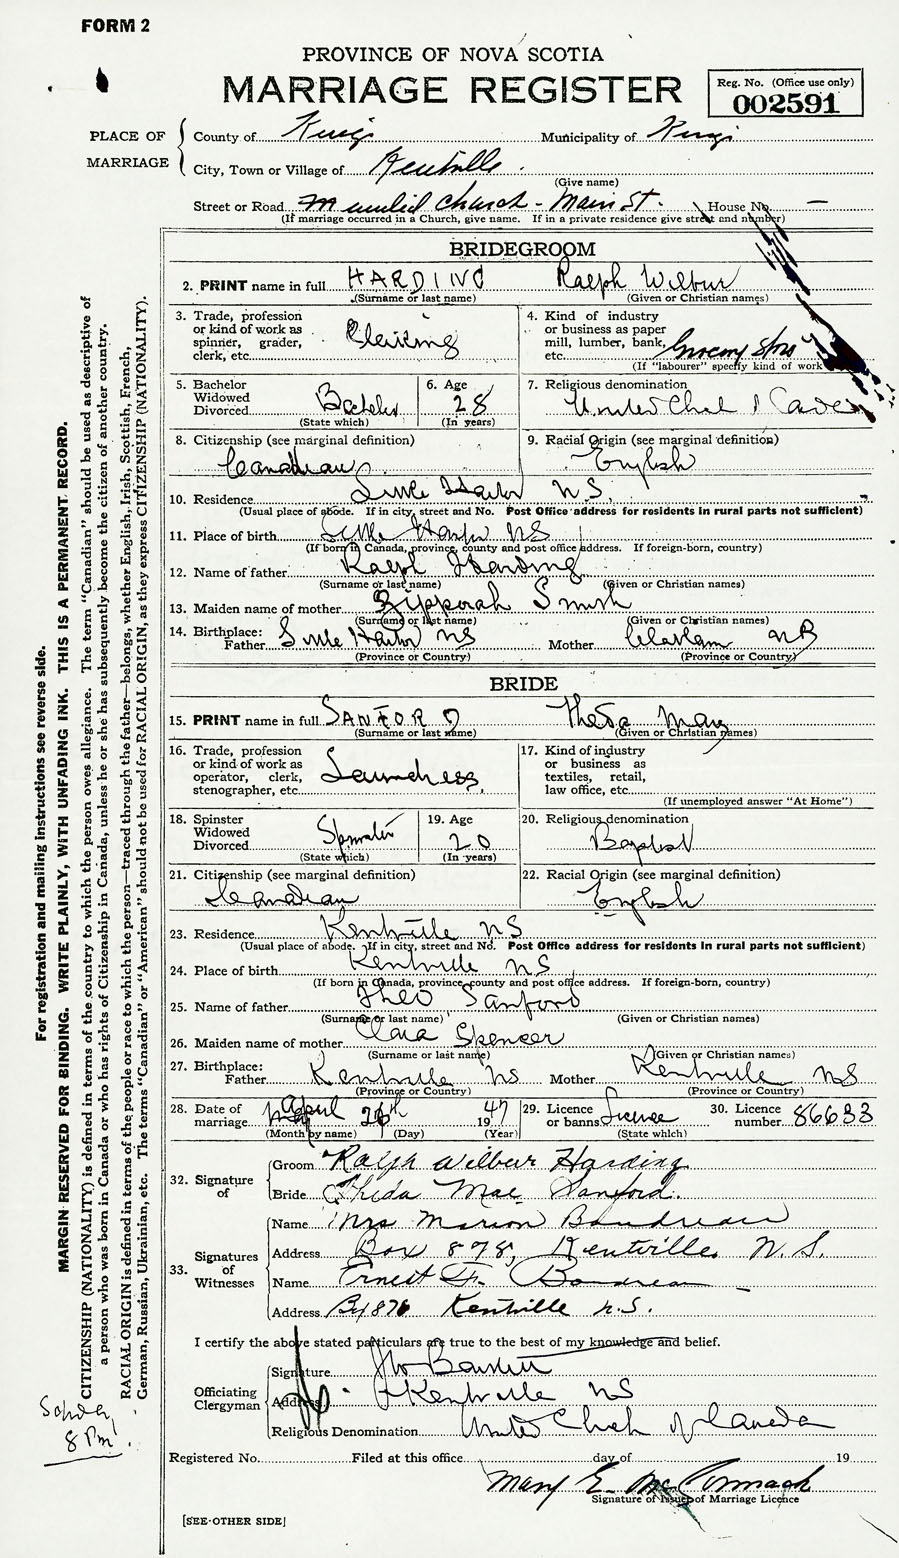 FORM 2
PROVINCE OF NOVA SCOTIA
MARRIAGE REGISTER
Reg. No. (Office use only)
002591
PLACE OF MARRIAGE
County of Kings Municipality of Kings
City, Town or Village of Kentville
(Give name)
Street or Road United Church - Main St. House No. —
(If marriage occurred in a Church, give name. If in a private residence give street and number)
BRIDEGROOM
2. PRINT name in full HARDING Ralph Wilbur
(Surname or last name) (Given or Christian names)
3. Trade, profession or kind of work as spinner, grader, clerk, etc. Clerking
4. Kind of industry or business as paper mill, lumber, bank, etc. Grocery Store
(If "labourer" specify kind of work
5. Bachelor Widowed Divorced Bachelor
(State which)
6. Age 28
(In years)
7. Religious denomination United
8. Citizenship (see marginal definition) Canadian
9. Racial Origin (see marginal definition) English
10. Residence Little Harbor N S.
(Usual place of abode. If in city, street and No. Post Office address for residents in rural parts not sufficient)
11. Place of birth Little Harbor N S
(If born in Canada, province, county and post office address. If foreign-born, country)
12. Name of father Ralph Harding
(Surname or last name) (Given or Christian names)
13. Maiden name of mother Zipporah Smith
(Surname or last name) (Given or Christian names)
14. Birthplace: Father Little Harbor N S Mother NB
(Province or Country) (Province or Country)
BRIDE
15. PRINT name in full SANFORD May
(Surname or last name) (Given or Christian names)
16. Trade, profession or kind of work as operator, clerk, stenographer, etc. Laundress
17. Kind of industry or business as textiles, retail, law office, etc.
(If unemployed answer "At Home")
18. Spinster Widowed Divorced Spinster
(State which)
19. Age 20
(In years)
20. Religious denomination Baptist
21. Citizenship (see marginal definition) Canadian
22. Racial Origin (see marginal definition) English
23. Residence Kentville N S
(Usual place of abode. If in city, street and No. Post Office address for residents in rural parts not sufficient)
24. Place of birth Kentville N S
(If born in Canada, province, county and post office address. If foreign-born, country)
25. Name of father Theo Sanford
(Surname or last name) (Given or Christian names)
26. Maiden name of mother Clara Spencer
(Surname or last name) (Given or Christian names)
27. Birthplace: Father Kentville N S Mother Kentville N S
(Province or Country) (Province or Country)
28. Date of marriage April 26th 1947
(Month by name) (Day) (Year)
29. Licence or banns License
(State which)
30. Licence number 86633
32. Signature of Groom Ralph Wilbur Harding
Bride Theda Mae Sanford.
33. Signatures of Witnesses
Name Mrs Marion Boudreau
Address Box 878, Kentville N. S.
Name Ernest F. Boudreau
Address Bx 878 Kentville N.S.
I certify the above stated particulars are true to the best of my knowledge and belief.
Officiating Clergyman
Signature
Address Kentville N S
Religious Denomination United Church of Canada
Registered No. Filed at this office day of 19
Mary E. McCormack
Signature of Issuer of Marriage Licence
[SEE OTHER SIDE]
For registration and mailing instructions see reverse side.
MARGIN RESERVED FOR BINDING. WRITE PLAINLY, WITH UNFADING INK. THIS IS A PERMANENT RECORD.
CITIZENSHIP (NATIONALITY) is defined in terms of the country to which the person owes allegiance. The term "Canadian" should be used as descriptive of
a person who was born in Canada or who has rights of Citizenship in Canada, unless he or she has subsequently become the citizen of another country.
RACIAL ORIGIN is defined in terms of the people or race to which the person—traced through the father—belongs, whether English, Irish, Scottish, French,
German, Russian, Ukrainian, etc. The terms "Canadian" or "American" should not be used for RACIAL ORIGIN, as they express CITIZENSHIP (NATIONALITY).
8 Pm.